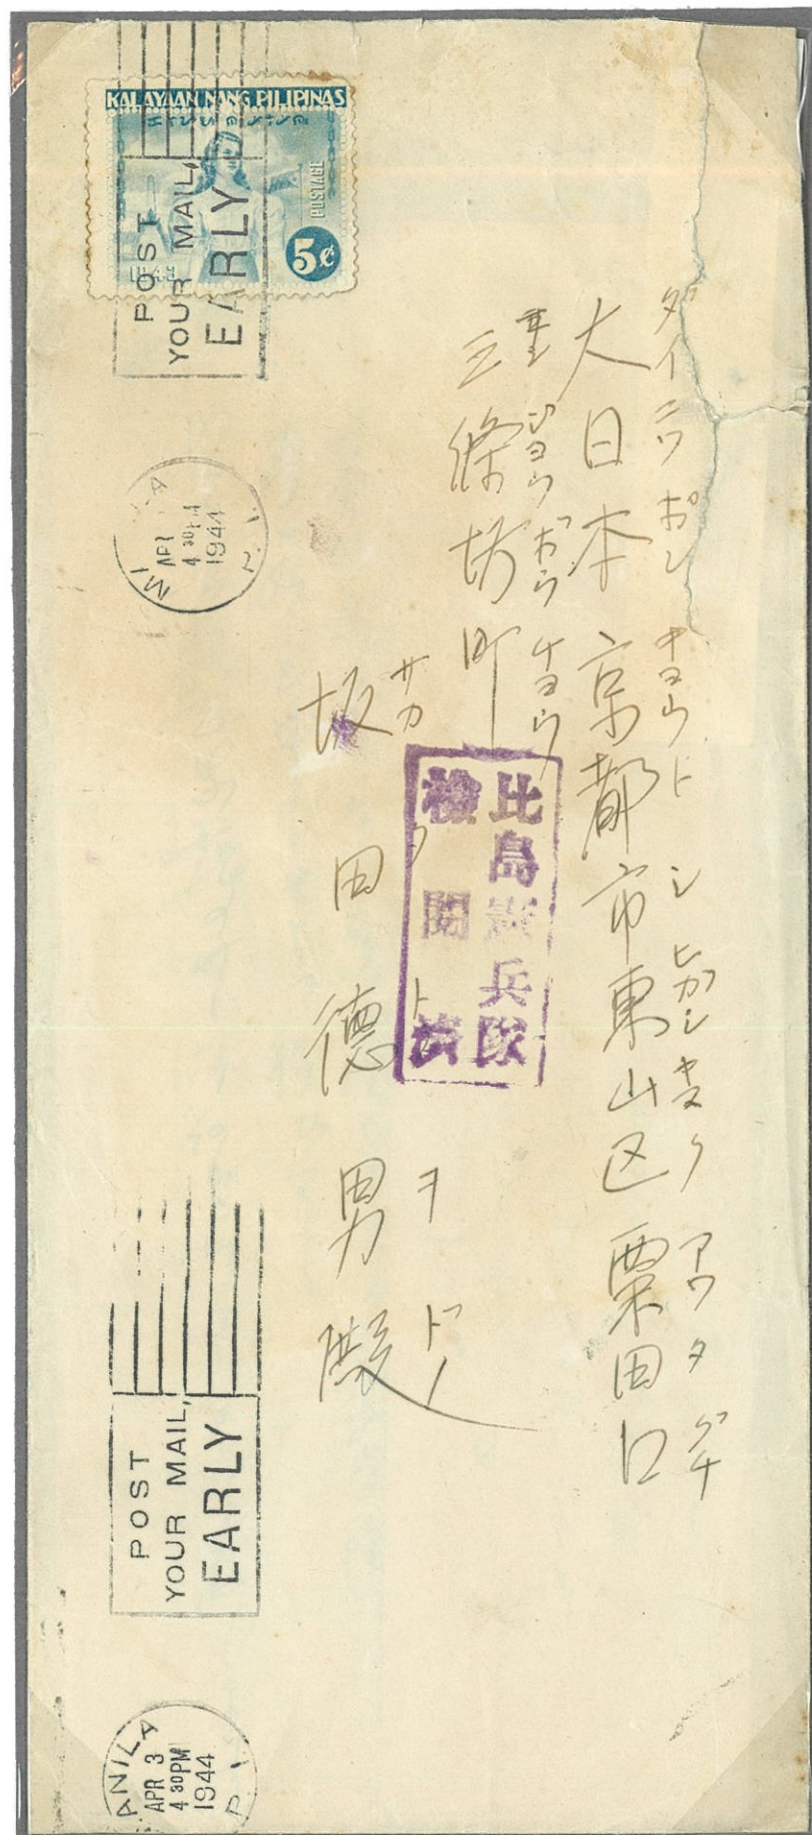 KALAYAAN NANG PILIPINAS
POSTAGE
5¢
POST
YOUR MAIL,
EARLY
APR
4 30PM
1944
P. I.
ダイニツポン キヨウト シ ヒガシヤマク アワタグチ
大日本京都市東山区粟田口
ジヨウボウチヨウ
三條坊町
サカ トクヲドノ
坂田徳男殿
比島憲兵隊
検閲済
POST
YOUR MAIL,
EARLY
ANILA
APR 3
4 30PM
1944
P. I.